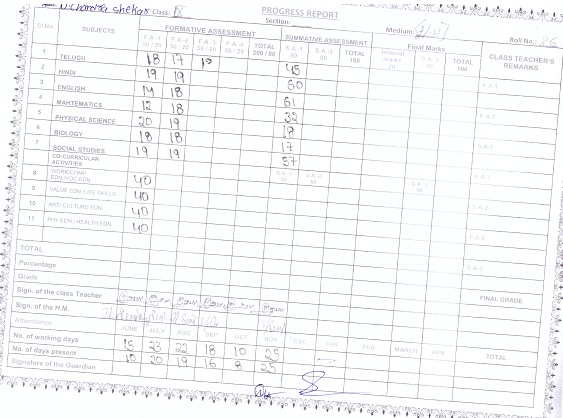 PROGRESS REPORT
N. Chandra Shekar Class: IX Section: Medium: Roll No.: 26
Sl.No. SUBJECTS FORMATIVE ASSESSMENT SUMMATIVE ASSESSMENT Final Marks CLASS TEACHER'S REMARKS
F.A-1 50 / 20 F.A-2 50 / 20 F.A-3 50 / 20 F.A-4 50 / 20 TOTAL 200 / 80 S.A-1 80 S.A-2 80 TOTAL 160 Internal marks 20 S.A-3 80 TOTAL 100
1 TELUGU 18 17 45
2 HINDI 19 19 60
3 ENGLISH 14 18 61
4 MAHTEMATICS 12 18 32
5 PHYSICAL SCIENCE 20 19 18
6 BIOLOGY 18 18 17
7 SOCIAL STUDIES 19 19 57
CO-CURRICULAR ACTIVITIES
8 WORK/COMP. EDN./VOC.EDN. 40
9 VALUE EDN./LIFE SKILLS 40
10 ART/ CULTURE EDN. 40
11 PHY.EDN./ HEALTH EDN. 40
F.A-1
F.A-2
S.A-1
F.A-4
TOTAL
Parcentage
Grade
FINAL GRADE
Sign. of the class Teacher
Sign. of the H.M.
Attendance JUNE JULY AUG SEP OCT NOV DEC JAN FEB MARCH APR TOTAL
No. of working days 15 23 22 18 10 25
No. of days present 10 20 19 16 8 25
Signature of the Guardian